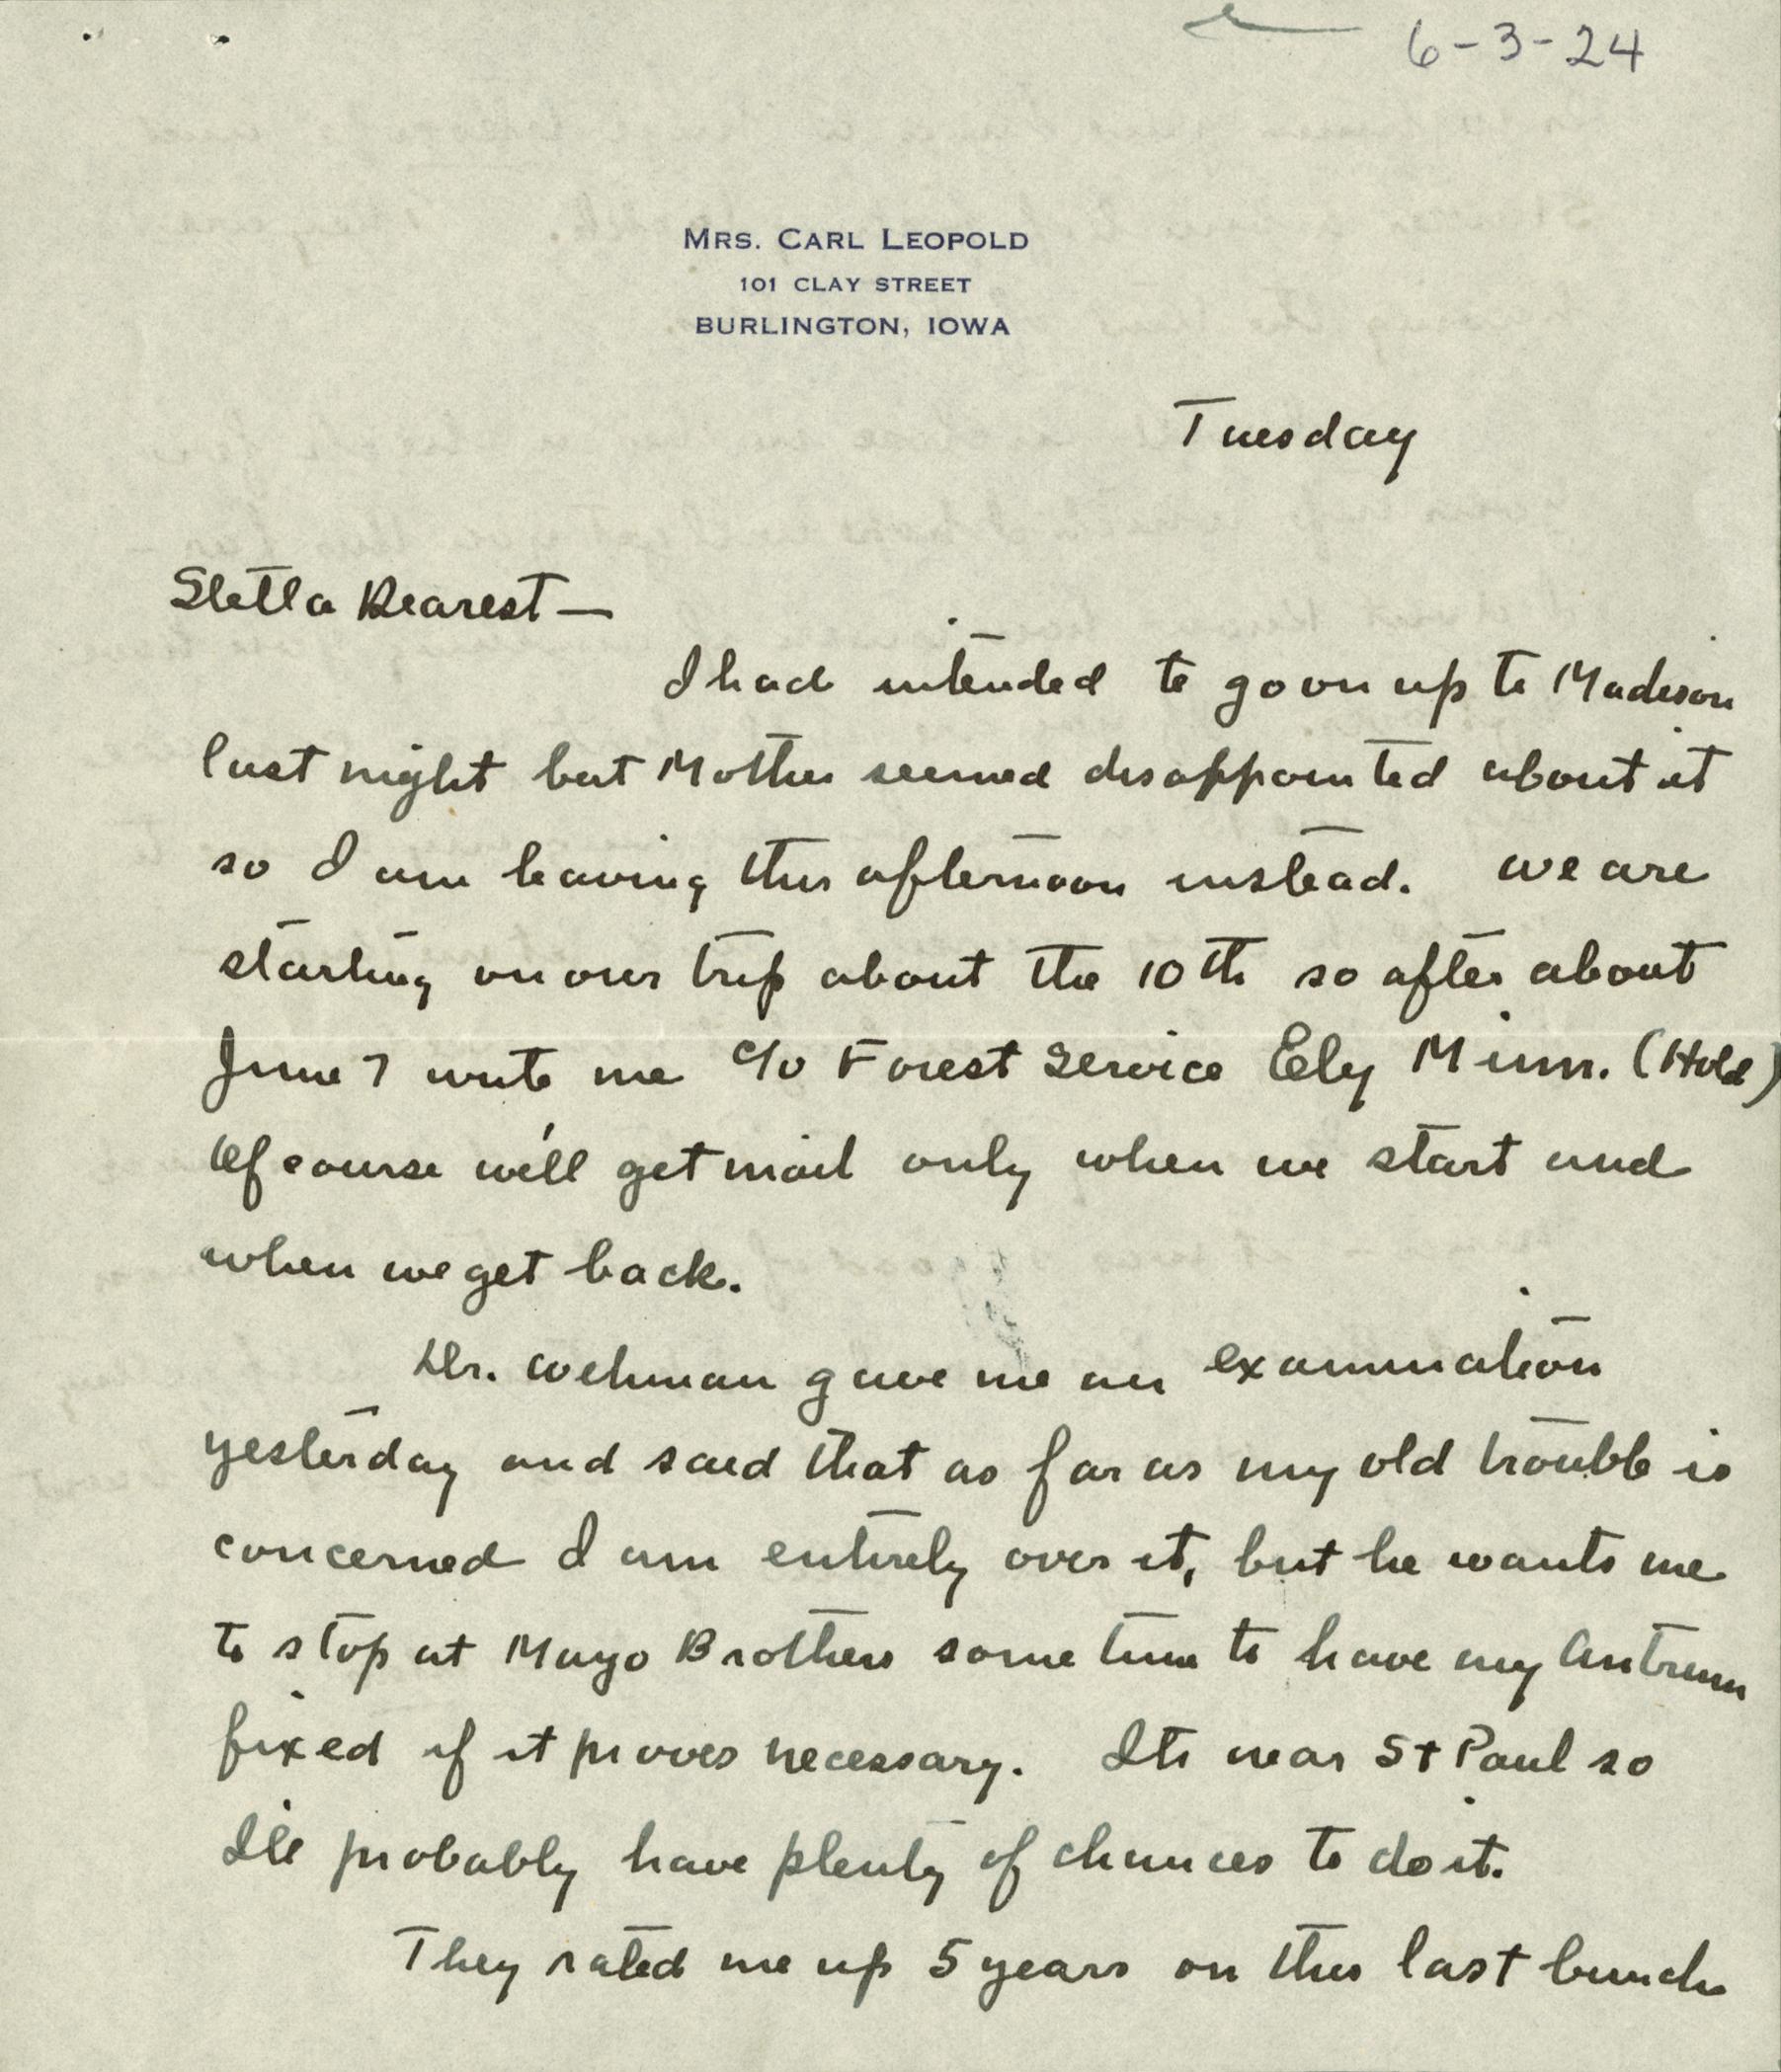 6-3-24
MRS. CARL LEOPOLD
101 CLAY STREET
BURLINGTON, IOWA
Tuesday
Stella Dearest —
I had intended to go on up to Madison
last night but Mother seemed disappointed about it
so I am leaving this afternoon instead. We are
starting on our trip about the 10th so after about
June 7 write me c/o Forest Service Ely Minn. (Hold)
Of course we'll get mail only when we start and
when we get back.
Dr. Wehman gave me an examination
yesterday and said that as far as my old trouble is
concerned I am entirely over it, but he wants me
to stop at Mayo Brothers some time to have my antrum
fixed if it proves necessary. Its near St Paul so
Ill probably have plenty of chances to do it.
They rated me up 5 years on this last bunch